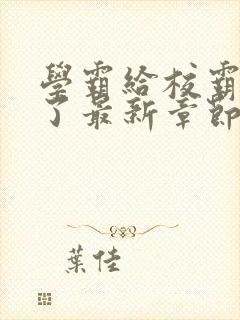 學霸給校霸
了最新章節
葉佳